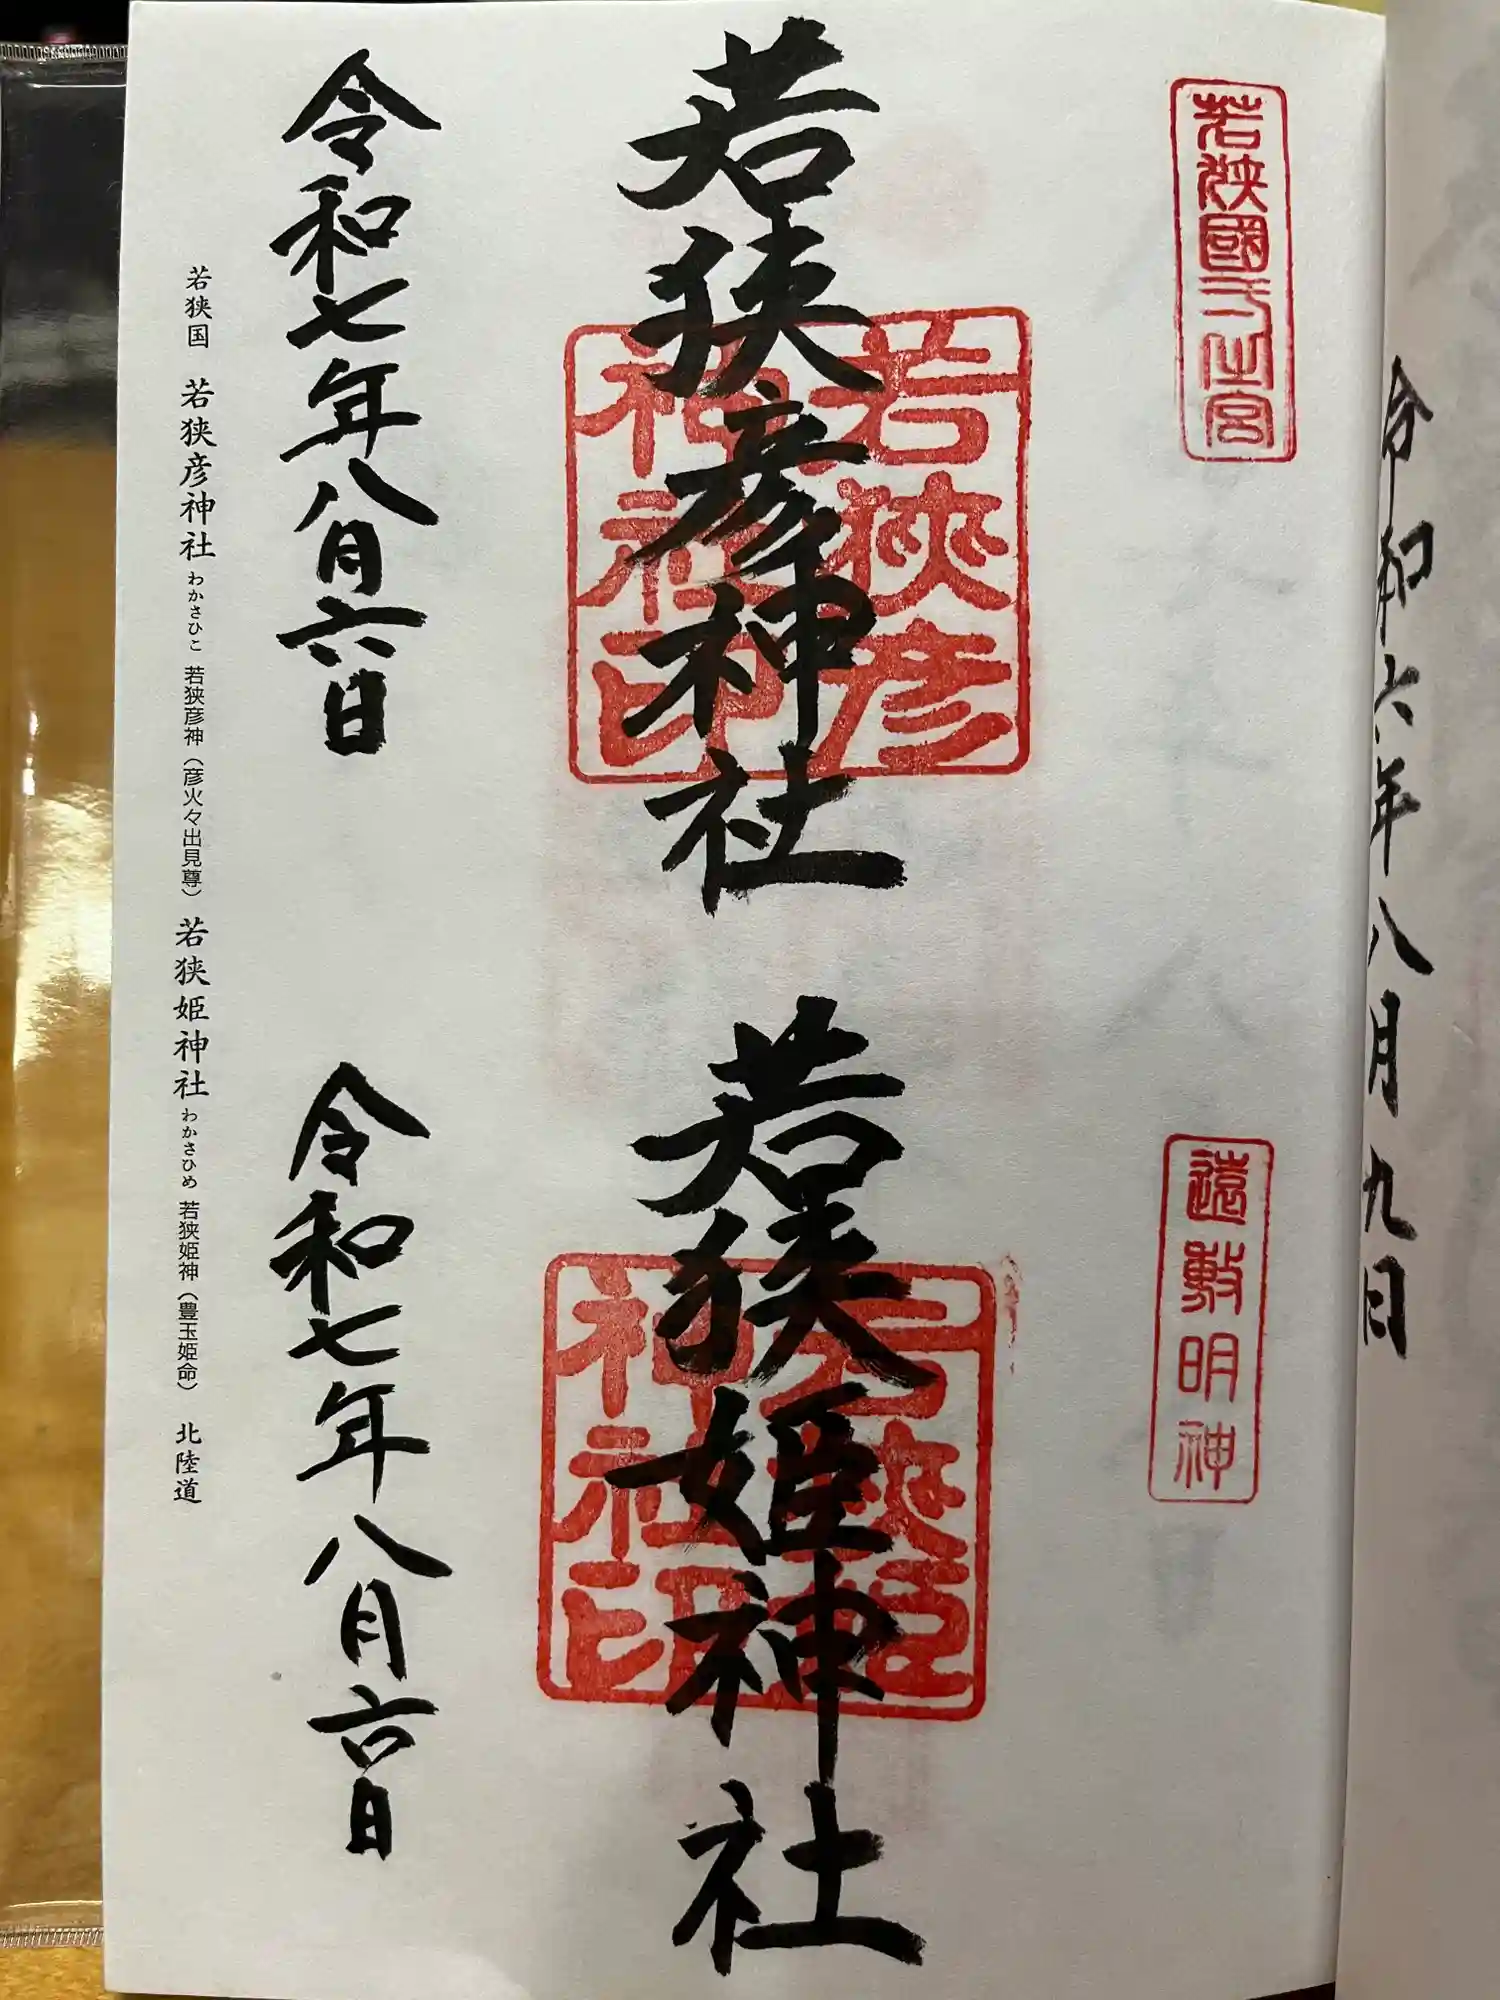 令和六年八月九日
若狭國一之宮
若狭彦神社
若狭彦
神社印
令和七年八月六日
遠敷明神
若狭姫神社
若狭姫
神社印
令和七年八月六日
若狭国 若狭彦神社 わかさひこ 若狭彦神（彦火々出見尊） 若狭姫神社 わかさひめ 若狭姫神（豊玉姫命） 北陸道